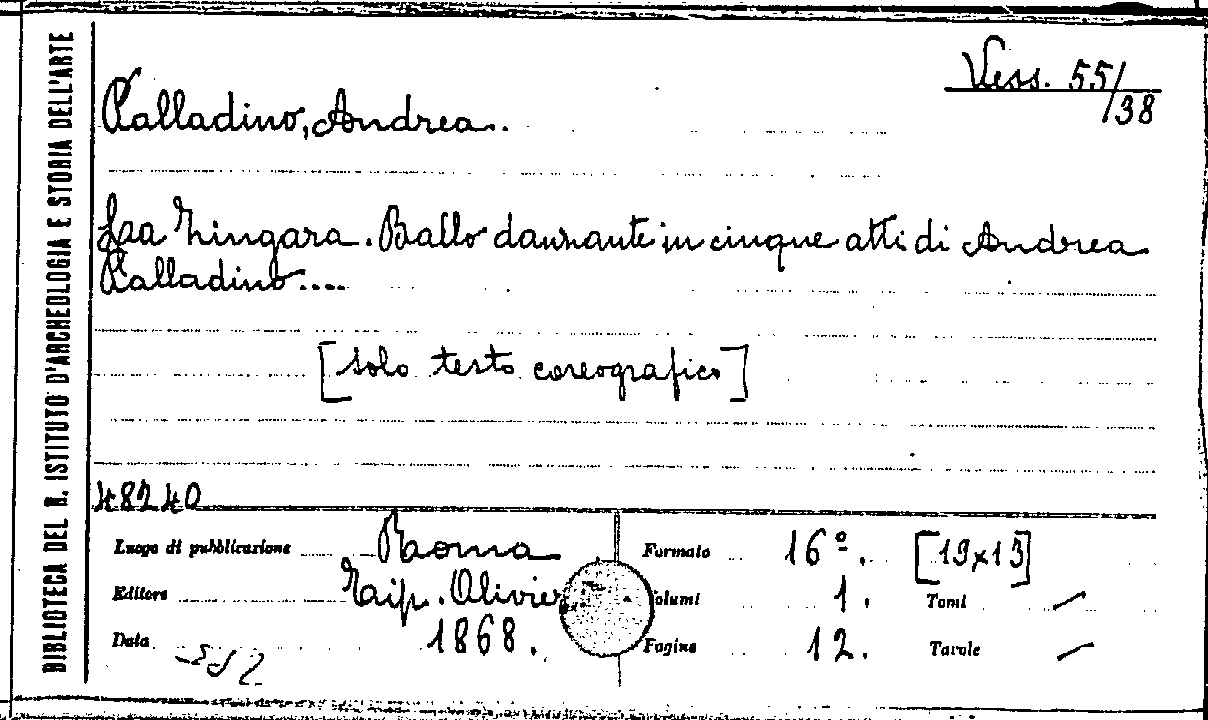 BIBLIOTECA DEL R. ISTITUTO D'ARCHEOLOGIA E STORIA DELL'ARTE
Vess. 55/38
Palladino, Andrea.
Laa Zingara. Ballo danzante in cinque atti di Andrea
Palladino....
[solo testo coreografico]
48240
Luogo di pubblicazione Roma
Formato 16º. [19x13]
Editore Tip. Olivier
Volumi 1. Tomi —
Data 1868.
Pagine 12. Tavole —